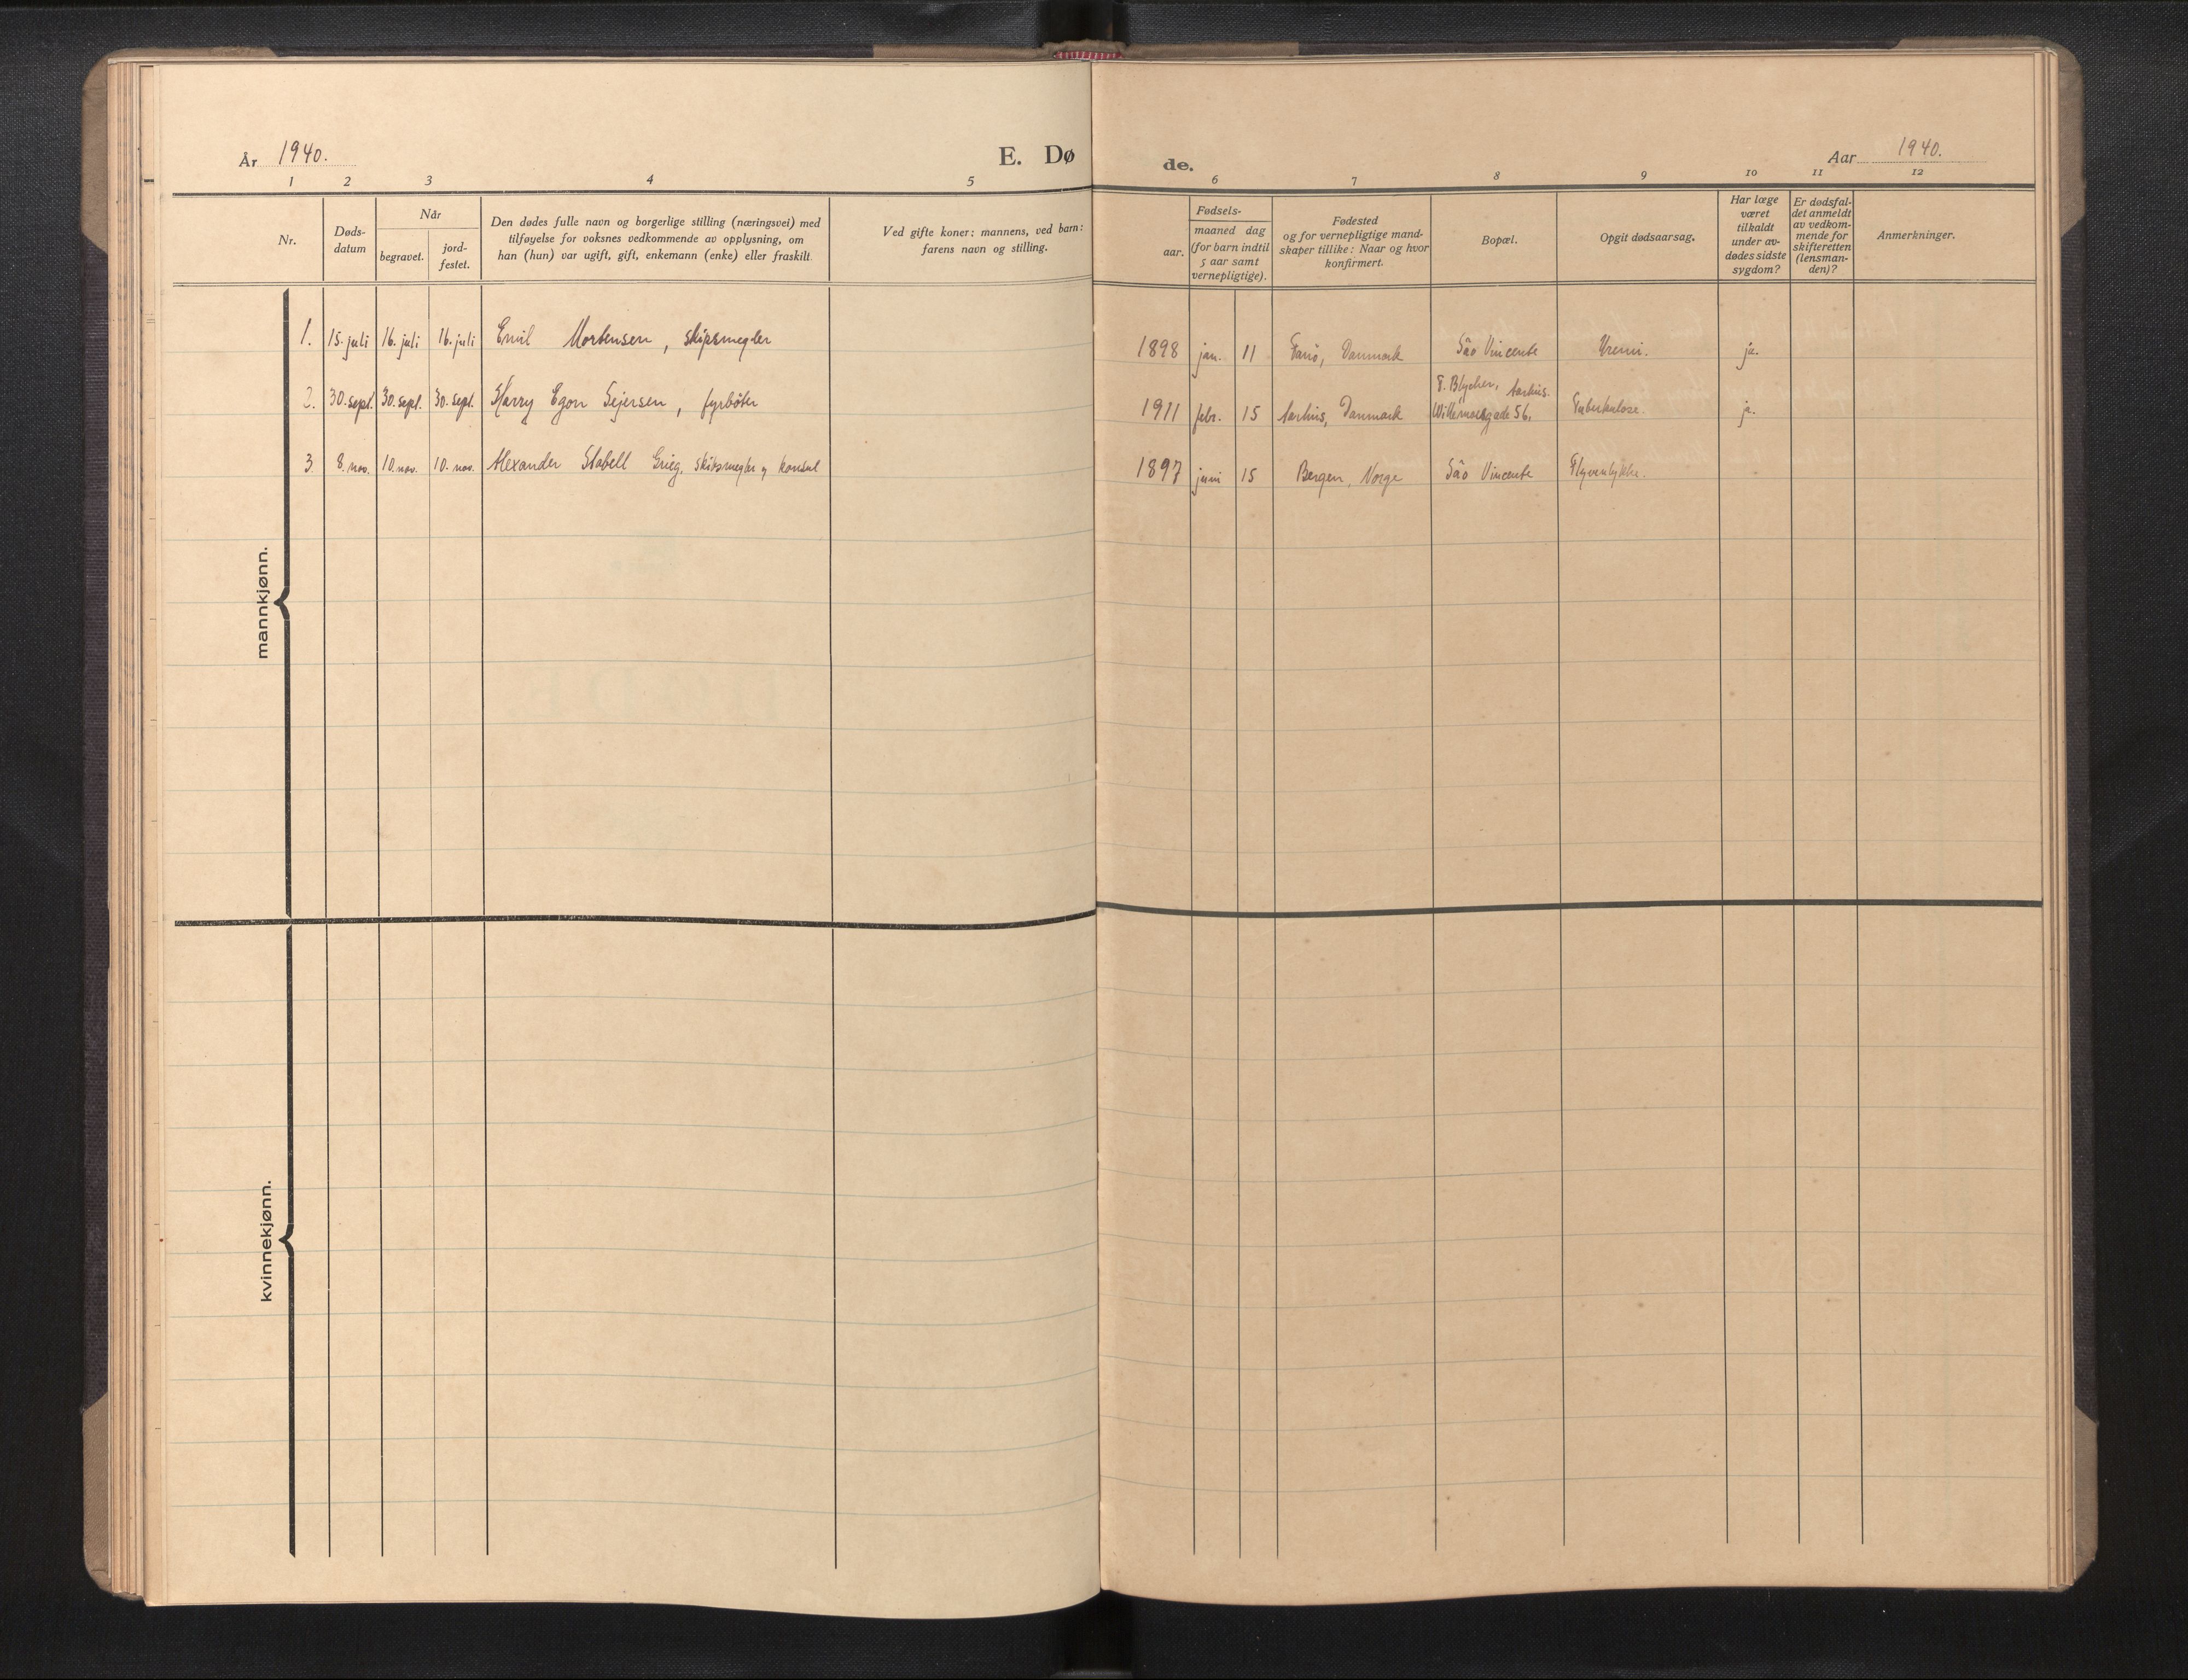 År 1940.
E. Dø
de.
Aar 1940.
1 2 3 4 5
6 7 8 9 10 11 12
Nr.
Døds-
datum
Når
begravet.
jord-
festet.
Den dødes fulle navn og borgerlige stilling (næringsvei) med
tilføyelse for voksnes vedkommende av opplysning, om
han (hun) var ugift, gift, enkemann (enke) eller fraskilt.
Ved gifte koner: mannens, ved barn:
farens navn og stilling.
aar.
Fødsels-
maaned dag
(for barn indtil
5 aar samt
vernepligtige).
Fødested
og for vernepligtige mand-
skaper tillike: Naar og hvor
konfirmert.
Bopæl.
Opgit dødsaarsag.
Har læge
været
tilkaldt
under av-
dødes sidste
sygdom?
Er dødsfal-
det anmeldt
av vedkom-
mende for
skifteretten
(lensman-
den)?
Anmerkninger.
mannkjønn.
1. 15. juli 16. juli 16. juli Emil Mortensen, skipsmegler 1898 jan. 11 Fanö, Danmark São Vincente Uremi. ja.
2. 30. sept. 30. sept. 30. sept. Harry Egon Sejersen, fyrböter 1911 febr. 15 Aarhus, Danmark Blycher, Aarhus.
Willemoesgade 56. Tuberkulose. ja.
3. 8. nov. 10. nov. 10. nov. Alexander Stabell Grieg, skipsmegler og konsul 1897 juni 15 Bergen, Norge São Vincente Flyveulykke.
kvinnekjønn.